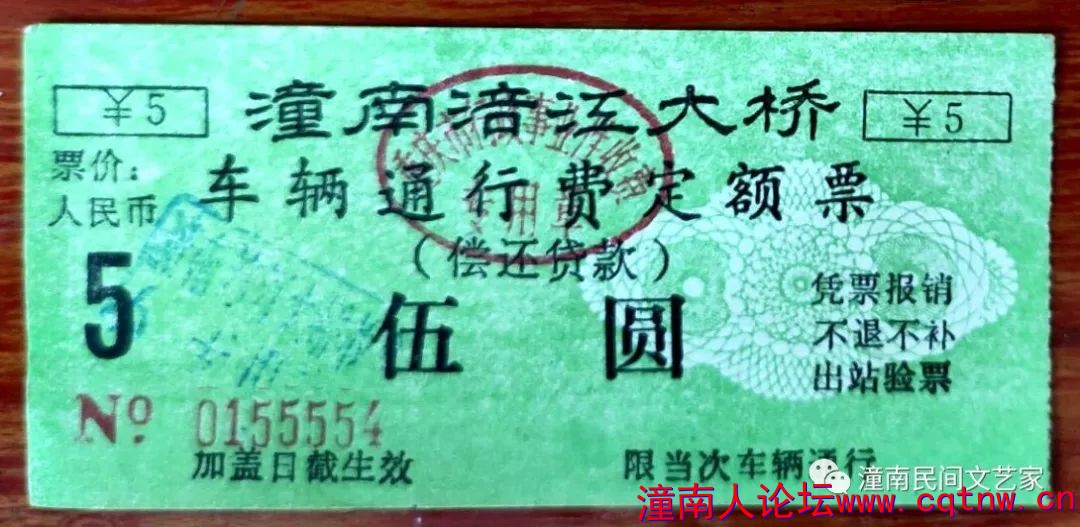 ¥5
潼南涪江大桥
¥5
票价:
人民币
车辆通行费定额票
(偿还贷款)
5
伍圆
凭票报销
不退不补
出站验票
№ 0155554
加盖日戳生效
限当次车辆通行
潼南民间文艺家
潼南人论坛www.cqtnw.cn